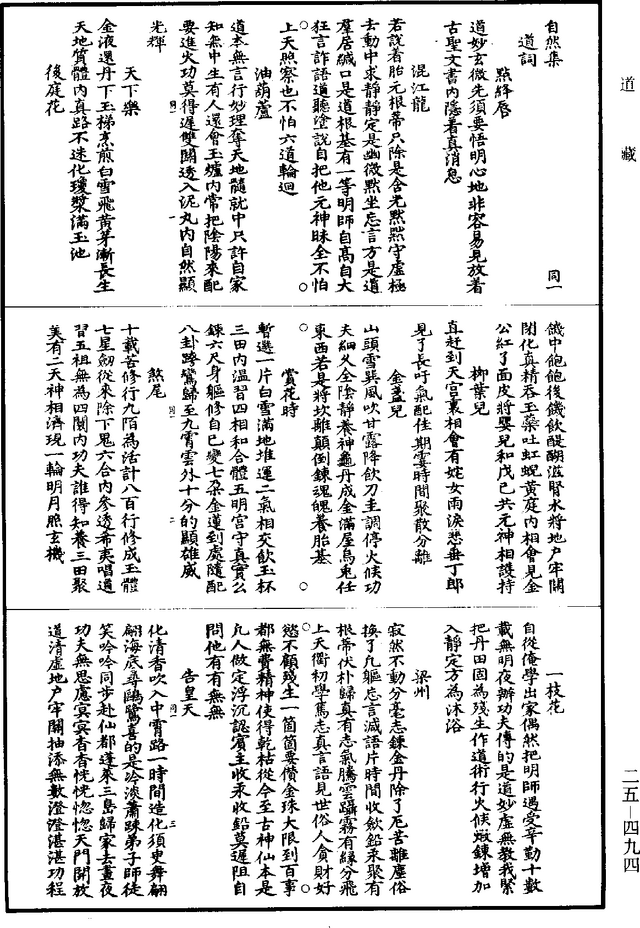 道藏
自然集
道詞
同一
點絳唇
道妙玄微先須要悟明心地非容易見放着
古聖文書內隱着真消息
混江龍
若說着胎元根蒂只除是含光默默守虛極
去動中求靜靜定是幽微默坐忘言方是道
羣居緘口是道根基有一等明師自高自大
狂言詐語道聽塗說自把他元神昧全不怕
上天照察也不怕六道輪迴
油葫蘆
道本無言行妙理奪天地髓就中只許自家
知無中生有人還會玉爐內常把陰陽來配
要進火功莫得遲雙關透入泥丸內自然顯
光輝
天下樂
金液還丹下玉梯烹煎白雪飛黃芽漸長生
天地質體內真路不迷化瓊漿滿玉池
後庭花
饑中飽飽後饑飲醍醐滋腎水將地戶牢關
閉化真精吞玉蘂吐虹蜺黃庭內相會見金
公紅了面皮將嬰兒和戊己共元神相護持
柳葉兒
直赶到天宮裏相會有姹女雨淚悲垂丁郎
見了長吁氣配佳期霎時間聚散分離
金盞兒
山頭雪巽風吹甘露降飲刀圭調停火候功
夫細久全陰靜養神龜丹成金滿屋烏兔任
東西若是將坎離顛倒鍊魂魄養胎基
賞花時
暫選一片白雪滿地堆運二氣相交飲玉杯
三田內溫習四相和合體五明宮守真實么
鍊六尺身軀修自己變七朶金蓮到處隨配
八卦跨鸞歸至九霄雲外十分的顯雄威
煞尾
十載苦修行九陌為活計八百行修成玉體
七星劒從來除下鬼六合內參透希夷唱道
習五祖無為四關內功夫誰得知養三田聚
美有二天神相濟現一輪明月照玄機
一枝花
自從俺學出家偶然把明師遇受辛勤十數
載無明夜辦功夫傳的是道妙虛無教我緊
把丹田固為殘生作道術行火候煅鍊增加
入靜定方為沐浴
梁州
寂然不動分毫志鍊金丹除了死苦離塵俗
換了凡軀忘言滅語片時間收歛鉛汞聚有
根蒂伏朴歸真有志氣騰雲躡霧有緣分飛
上天衢初學篤志真言語見世俗人貪財好
慾不顧殘生一箇箇要儹金珠大限到百事
都無費精神使得乾枯從今至古神仙本是
凡人做定浮沉認賓主收汞收鉛莫遲阻自
問他有有無無
告皇天
化清香吹入中霄路一時間造化須臾舞翩
翩海底尋鷗鷺喜的是冷淡蕭踈弟子師徒
笑吟吟同步赴仙都蓬萊三島歸家去晝夜
功夫無思慮冥冥杳杳恍恍惚惚天門開放
道清虛地戶牢關抽添無數澄澄湛湛功程
二五—四九四